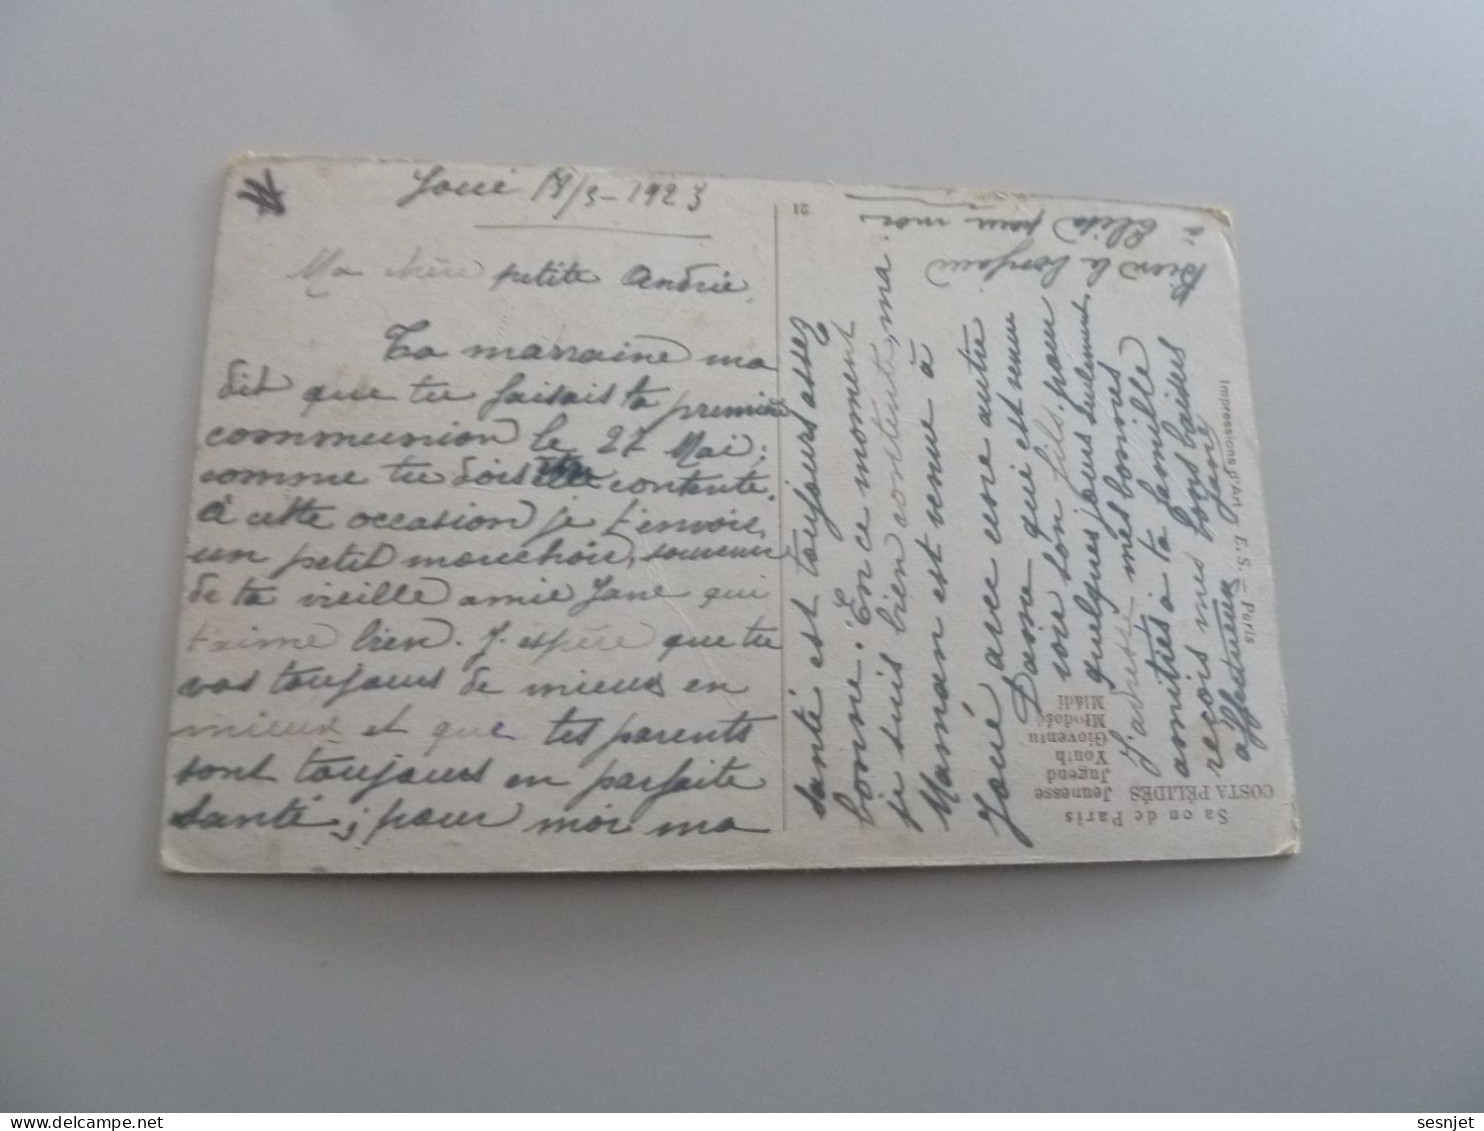 Joué 18/5-1923
Ma chère petite Andrée,
Ta marraine ma
dit que tu faisais ta première
communion le 27 Mai;
comme tu dois être contente.
à cette occasion je t'envoie,
un petit mouchoir, souvenir
de ta vieille amie Jane qui
t'aime bien. J'espère que tu
vas toujours de mieux en
mieux et que tes parents
sont toujours en parfaite
santé; pour moi ma
santé est toujours assez
bonne. En ce moment
je suis bien contente, ma
Maman est venue à
Joué avec une autre
Dame qui est venue
voir son fils, pour
quelques jours seulement
J'adresse mes bonnes
amitiés à ta famille
reçois mes bons baisers
affectueux Jane
Bien le bonjour
à Elisa pour moi.
21
Impressions d'Art, E. S. - Paris
Sa on de Paris
COSTA PÉLIDÈS
Jeunesse
Jugend
Youth
Gioventu
Młodość
Mládí
sesnjet